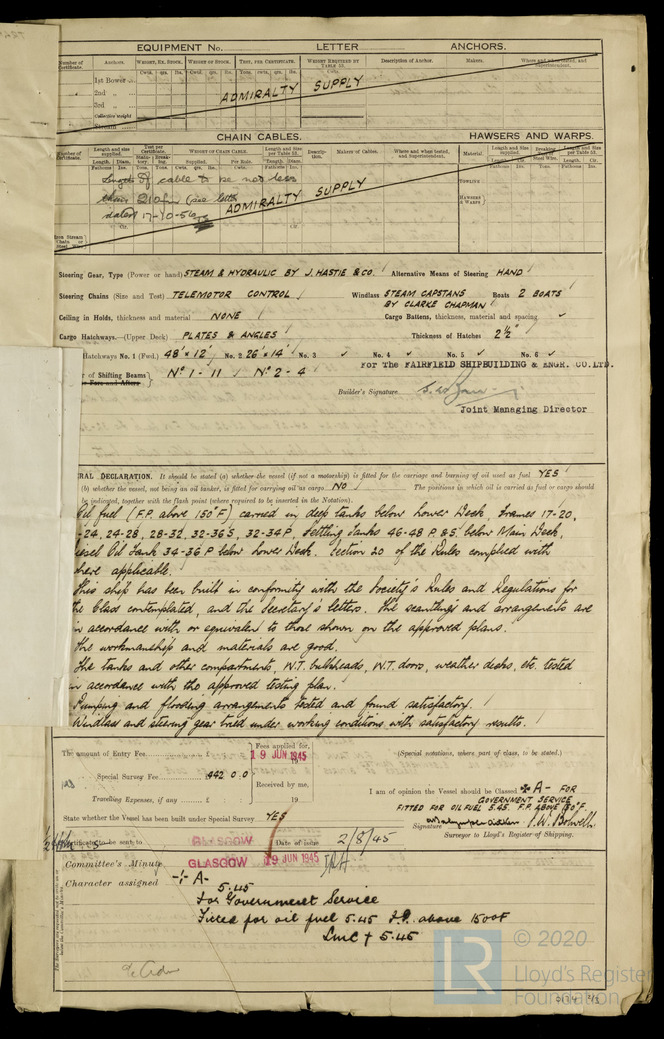 EQUIPMENT No. LETTER ANCHORS.
Number of Certificate. Anchors. WEIGHT, EX. STOCK. WEIGHT OF STOCK. TEST, PER CERTIFICATE. WEIGHT REQUIRED BY TABLE 53. Description of Anchor. Makers. Where and when tested, and Superintendent.
Cwts. qrs. lbs. Cwts. qrs. lbs. Tons. cwts. qrs. lbs. Cwts.
1st Bower
2nd "
3rd "
Collective weight
Stream
ADMIRALTY SUPPLY
CHAIN CABLES. HAWSERS AND WARPS.
Number of Certificate. Length and size supplied. Test per Certificate. WEIGHT OF CHAIN CABLE. Length and size per Table 53. Description. Makers of Cables. Where and when tested, and Superintendent. Material. Length and size supplied. Breaking Test, Steel Wire. Length and size per Table 53.
Length. Diam. Statutory. Breaking. Supplied. Per Rule. Length. Diam. Length. Cir. Length. Cir.
Fathoms Ins. Tons. Tons. Cwts. qrs. lbs. Cwts. qrs. lbs. Fathoms Ins. Fathoms Ins. Tons. Fathoms Ins.
Length of cable to be not less
than 210 fm (see letter
dated 17-10-56
ADMIRALTY SUPPLY
TOWLINE
HAWSERS & WARPS
Iron Stream Chain or Steel Wire
Cir. Cir.
Steering Gear, Type (Power or hand) STEAM & HYDRAULIC BY J. HASTIE & CO. Alternative Means of Steering HAND
Steering Chains (Size and Test) TELEMOTOR CONTROL Windlass STEAM CAPSTANS BY CLARKE CHAPMAN Boats 2 BOATS
Ceiling in Holds, thickness and material NONE Cargo Battens, thickness, material and spacing ✓
Cargo Hatchways.—(Upper Deck) PLATES & ANGLES Thickness of Hatches 2½"
Hatchways No. 1 (Fwd.) 48' × 12' No. 2 26' × 14' No. 3 ✓ No. 4 ✓ No. 5 ✓ No. 6 ✓
of Shifting Beams No 1 - 11 No 2 - 4
or Fore and Afters
FOR THE FAIRFIELD SHIPBUILDING & ENGR. CO. LTD.
Builder's Signature.
Joint Managing Director
RAL DECLARATION. It should be stated (a) whether the vessel (if not a motorship) is fitted for the carriage and burning of oil used as fuel YES
(b) whether the vessel, not being an oil tanker, is fitted for carrying oil as cargo NO The positions in which oil is carried as fuel or cargo should
be indicated, together with the flash point (where required to be inserted in the Notation).
Oil fuel (F.P. above 150°F) carried in deep tanks below Lower Deck, frames 17-20,
-24, 24-28, 28-32, 32-36 S, 32-34 P, Settling Tanks 46-48 P. & S. below Main Deck,
Diesel Oil Tank 34-36 P below Lower Deck. Section 20 of the Rules complied with
where applicable.
This ship has been built in conformity with the Society's Rules and Regulations for
the Class contemplated, and the Secretary's letters. The scantlings and arrangements are
in accordance with or equivalent to those shown on the approved plans.
The workmanship and materials are good.
The tanks and other compartments, W.T. bulkheads, W.T. doors, weather decks, etc. tested
in accordance with the approved testing plan.
Pumping and flooding arrangements tested and found satisfactory.
Windlass and steering gear tried under working conditions with satisfactory results.
The amount of Entry Fee £ : : Fees applied for,
19 JUN 1945
(Special notations, where part of class, to be stated.)
Special Survey Fee £ 442 0 0
Received by me,
I am of opinion the Vessel should be Classed ✠ A - FOR
GOVERNMENT SERVICE
Travelling Expenses, if any £ : : 19
FITTED FOR OIL FUEL 5.45. F.P. ABOVE 150°F.
State whether the Vessel has been built under Special Survey YES
Signature
Surveyor to Lloyd's Register of Shipping.
Certificate to be sent to GLASGOW Date of issue 2/8/45
Committee's Minute GLASGOW 19 JUN 1945
Character assigned + A -
5.45
For Government Service
Fitted for oil fuel 5.45 F.P. above 150°F
LMC + 5.45
LR © 2020
Lloyd's Register
Foundation